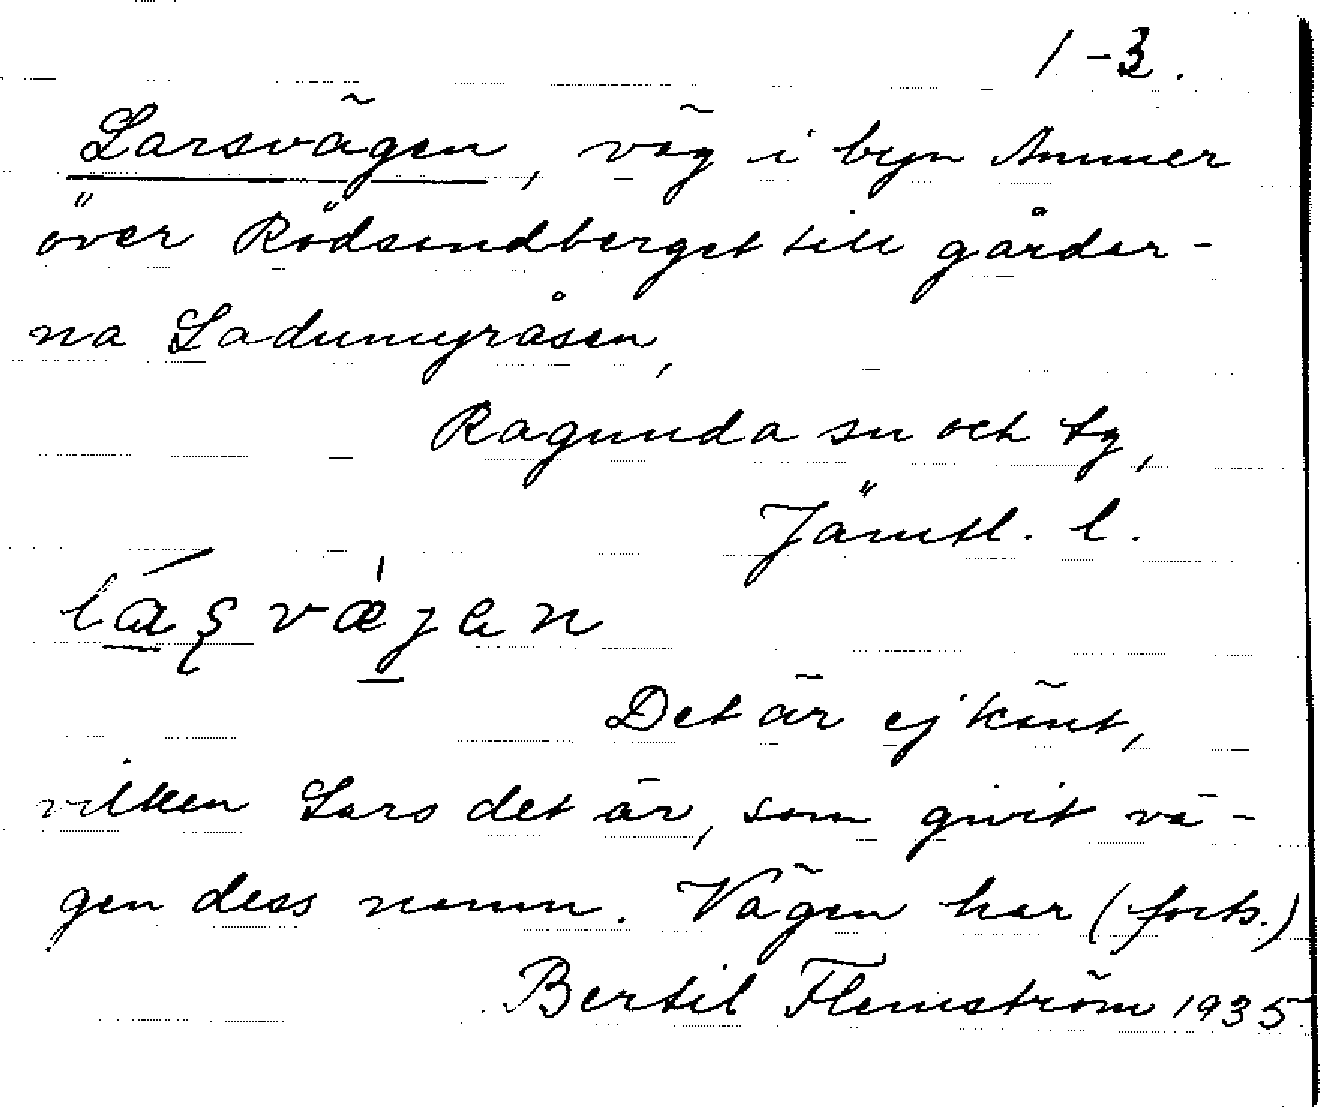 1-3.
Larsvägen, väg i byn Ammer
över Rödsundberget till gårdar-
na Ladumyråsen,
Ragunda sn och tg,
Jämtl. l.
Det är ej känt,
vilken Lars det är, som givit vä-
gen dess namn. Vägen har (forts.)
Bertil Flemström 1935